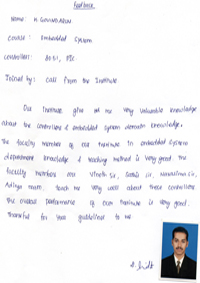 Feedback
Name : H. GOVINDARAJ
Course : Embedded System
Controllers : 8051, PIC
Joined by : Call from the Institute
Our Institute give me very valuable knowledge
about the controllers & embedded system domain knowledge.
The faculty member of our institute in embedded system
department knowledge & teaching method is very good. The
faculty members are Vinoth sir, sir, sir,
Aditya mam. teach me very well about these controllers
the overall performance of our institute is very good.
Thankful for your guidelines to me